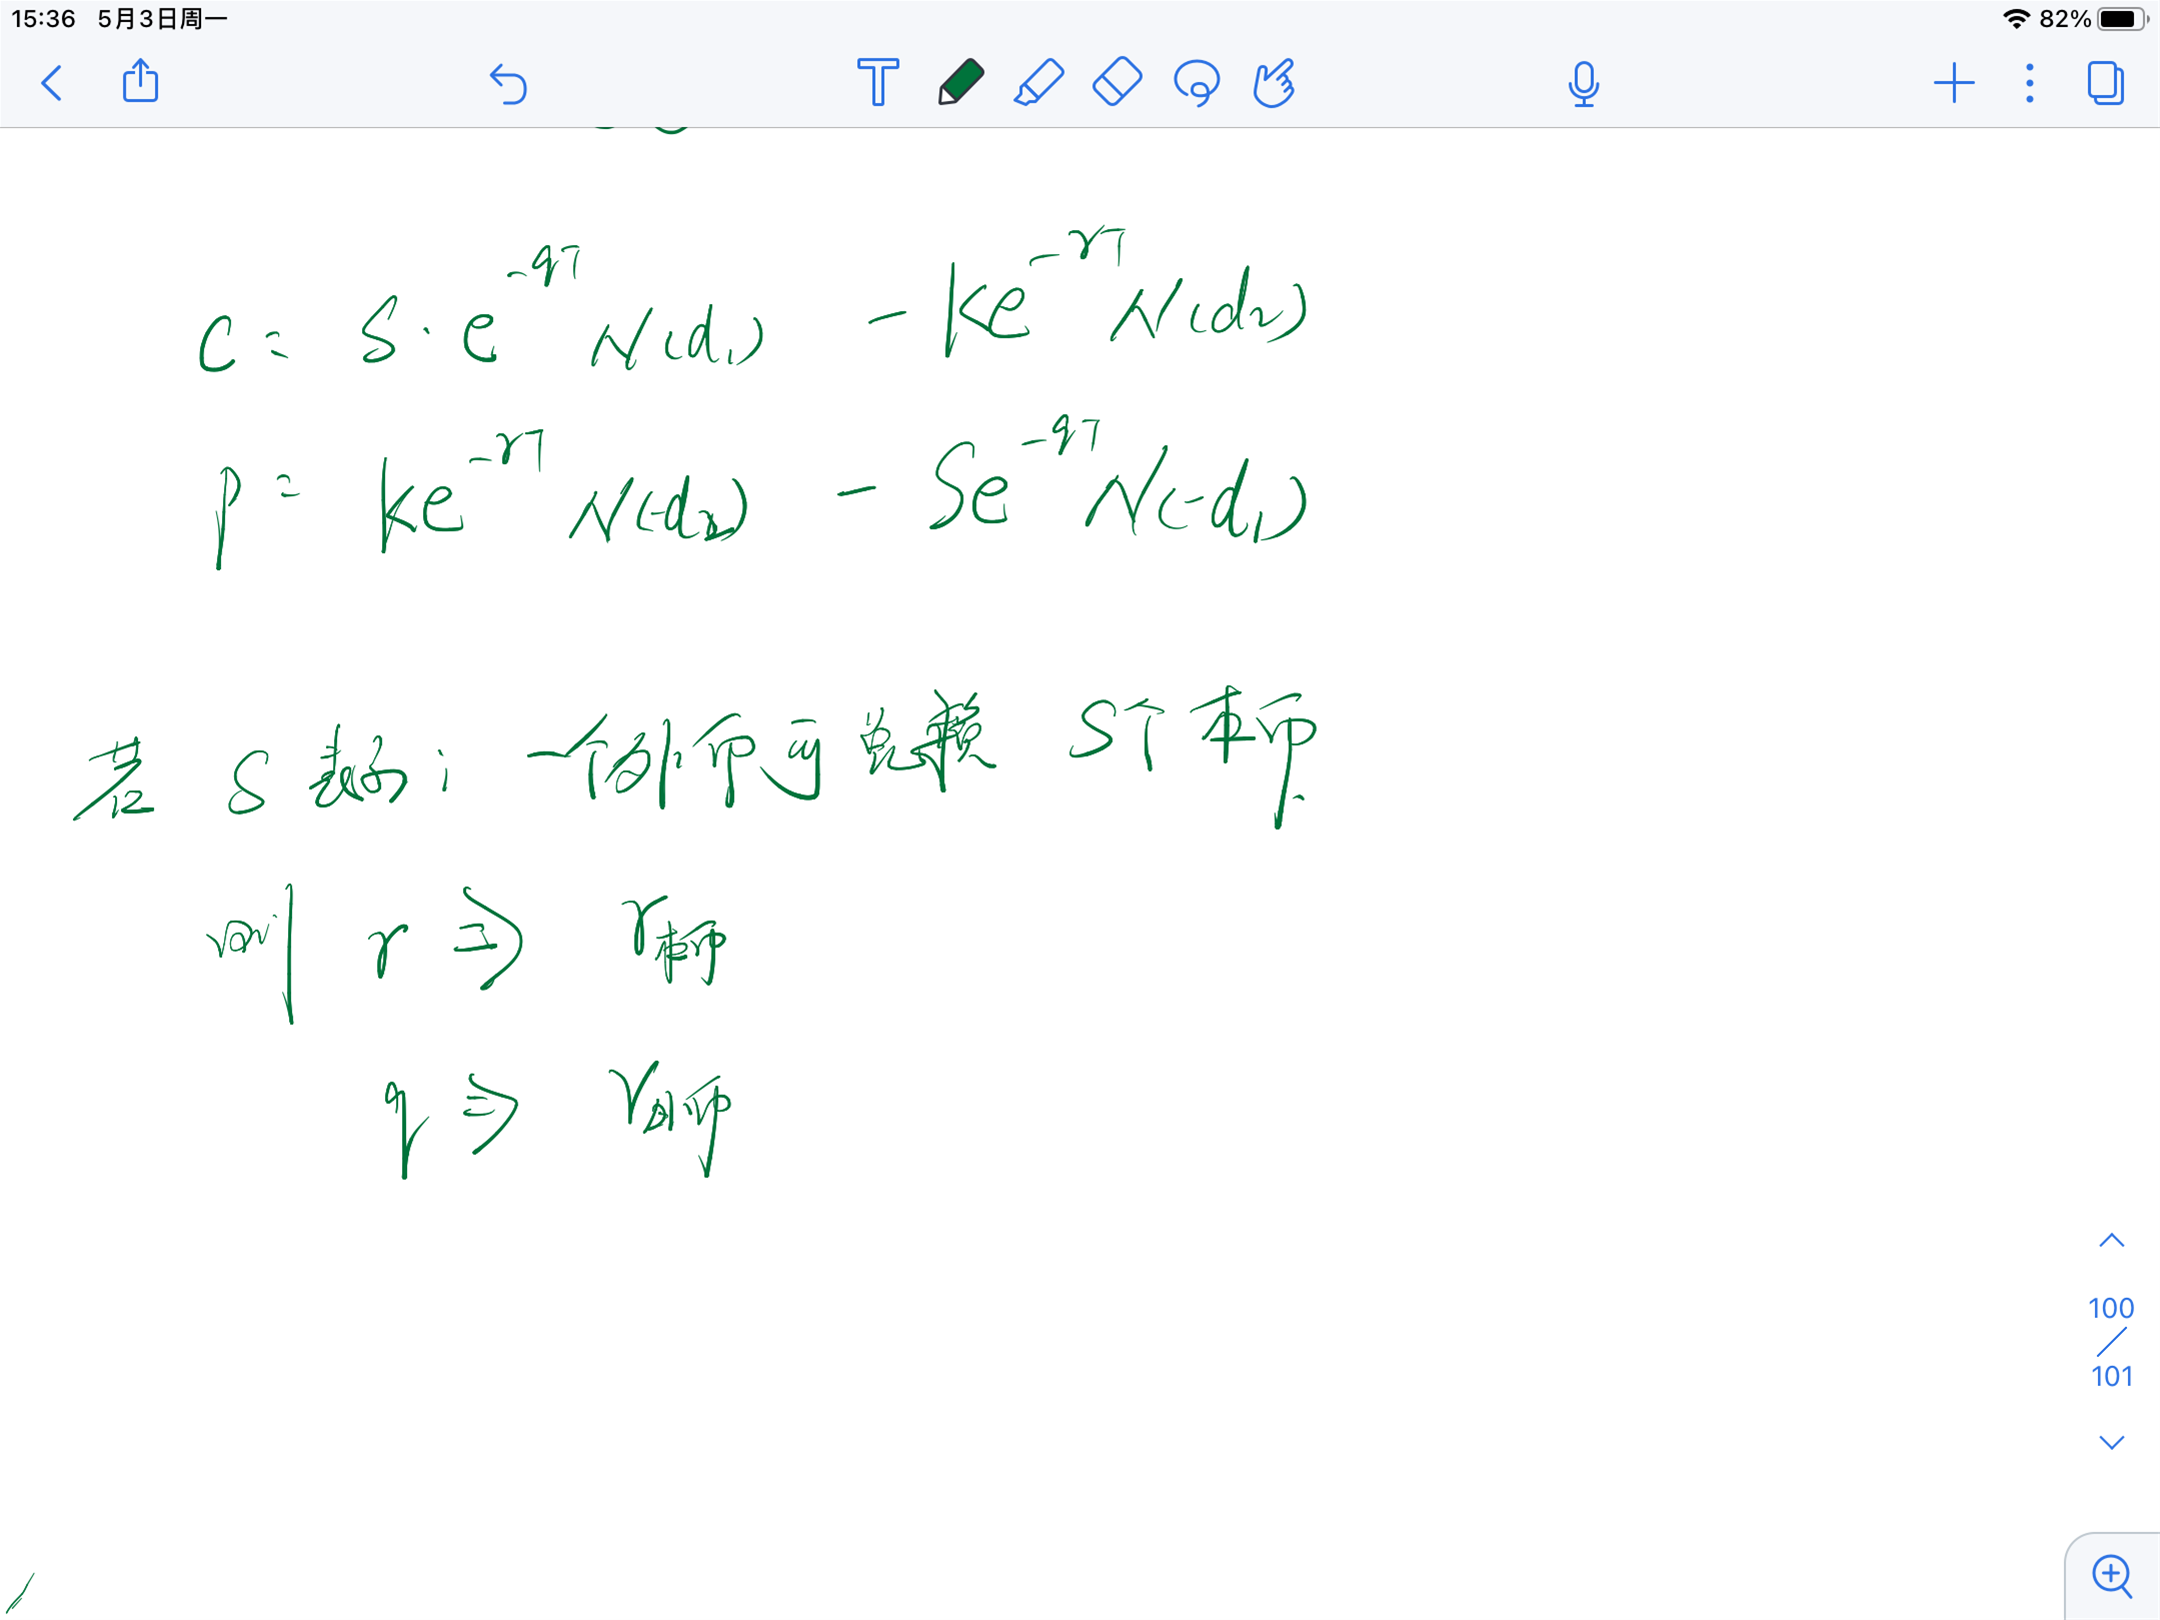 15:36 5月3日周一
82%
C = S · e^{-qT} N(d₁) - Ke^{-rT} N(d₂)
P = Ke^{-rT} N(-d₂) - Se^{-qT} N(-d₁)
若 S 表示: 一个外币可兑换 S个本币.
则 r ⇒ r本币
q ⇒ r外币
100
101